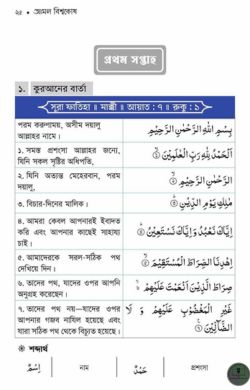 ২৫ • আমল বিশ্বকোষ
প্রথম সপ্তাহ
১. কুরআনের বার্তা
সূরা ফাতিহা ॥ মাক্কী ॥ আয়াত : ৭ ॥ রুকু : ১
পরম করুণাময়, অসীম দয়ালু
আল্লাহর নামে।
بِسْمِ اللّٰهِ الرَّحْمٰنِ الرَّحِيْمِ
১. সমস্ত প্রশংসা আল্লাহর জন্যে,
যিনি সকল সৃষ্টির অধিপতি,
اَلْحَمْدُ لِلّٰهِ رَبِّ الْعٰلَمِيْنَ ①
২. যিনি অত্যন্ত মেহেরবান, পরম
দয়ালু,
الرَّحْمٰنِ الرَّحِيْمِ ②
৩. বিচার-দিনের মালিক।
مٰلِكِ يَوْمِ الدِّيْنِ ③
৪. আমরা কেবল আপনারই ইবাদত
করি এবং আপনার কাছেই সাহায্য
চাই।
اِيَّاكَ نَعْبُدُ وَ اِيَّاكَ نَسْتَعِيْنُ ④
৫. আমাদেরকে সরল-সঠিক পথ
দেখিয়ে দিন।
اِهْدِنَا الصِّرَاطَ الْمُسْتَقِيْمَ ⑤
৬. তাদের পথ, যাদের ওপর আপনি
অনুগ্রহ করেছেন।
صِرَاطَ الَّذِيْنَ اَنْعَمْتَ عَلَيْهِمْ ⑥
৭. তাদের পথ নয়—যাদের ওপর
আপনার গজব নাযিল হয়েছে এবং
যারা সঠিক পথ থেকে বিচ্যুত হয়েছে।
غَيْرِ الْمَغْضُوْبِ عَلَيْهِمْ وَ لَا
الضَّآلِّيْنَ ⑦
শব্দার্থ
اِسْمٌ নাম حَمْدٌ প্রশংসা